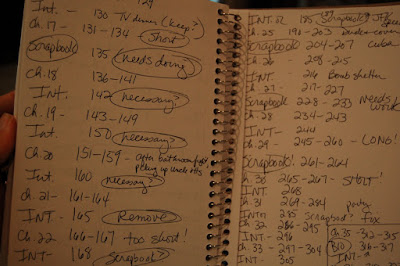 Int. - 129
130 TV dinner (keep?)
Ch. 17 - 131-134 Short
Scrapbook 135 needs doing
Ch. 18 136-141
INT. 142 necessary?
Ch. 19 - 143-149
Int. 150 necessary?
Ch 20 151-159 - after bathroom
picking up uncle
Int. 160 necessary?
Ch. 21 - 161-164
INT - 165 Remove
Ch. 22 166-167 too short!
INT - 168 Scrapbook?
INT. 185 Scrapbook? JFK
Ch. 25 190-203 under-cover
Scrapbook 204-207 Cuba
Ch. 26 208-215
INT. 216 Bomb shelter
Ch. 27 - 217-227
Scrapbook 228-233 NEEDS WORK
Ch. 28 234-243
INT 244
Ch. 29 - 245-260 - LONG!
Scrapbook! 261-264
Ch. 30 265-267 - SHORT!
INT. 268
Ch. 31 269-284
INT. 285 Scrapbook? Fox
Ch. 32 286-295
INT - 296
Ch. 33 - 297-304
INT - 305
Ch. 35 - 312-315
BIO 316-317
INT -